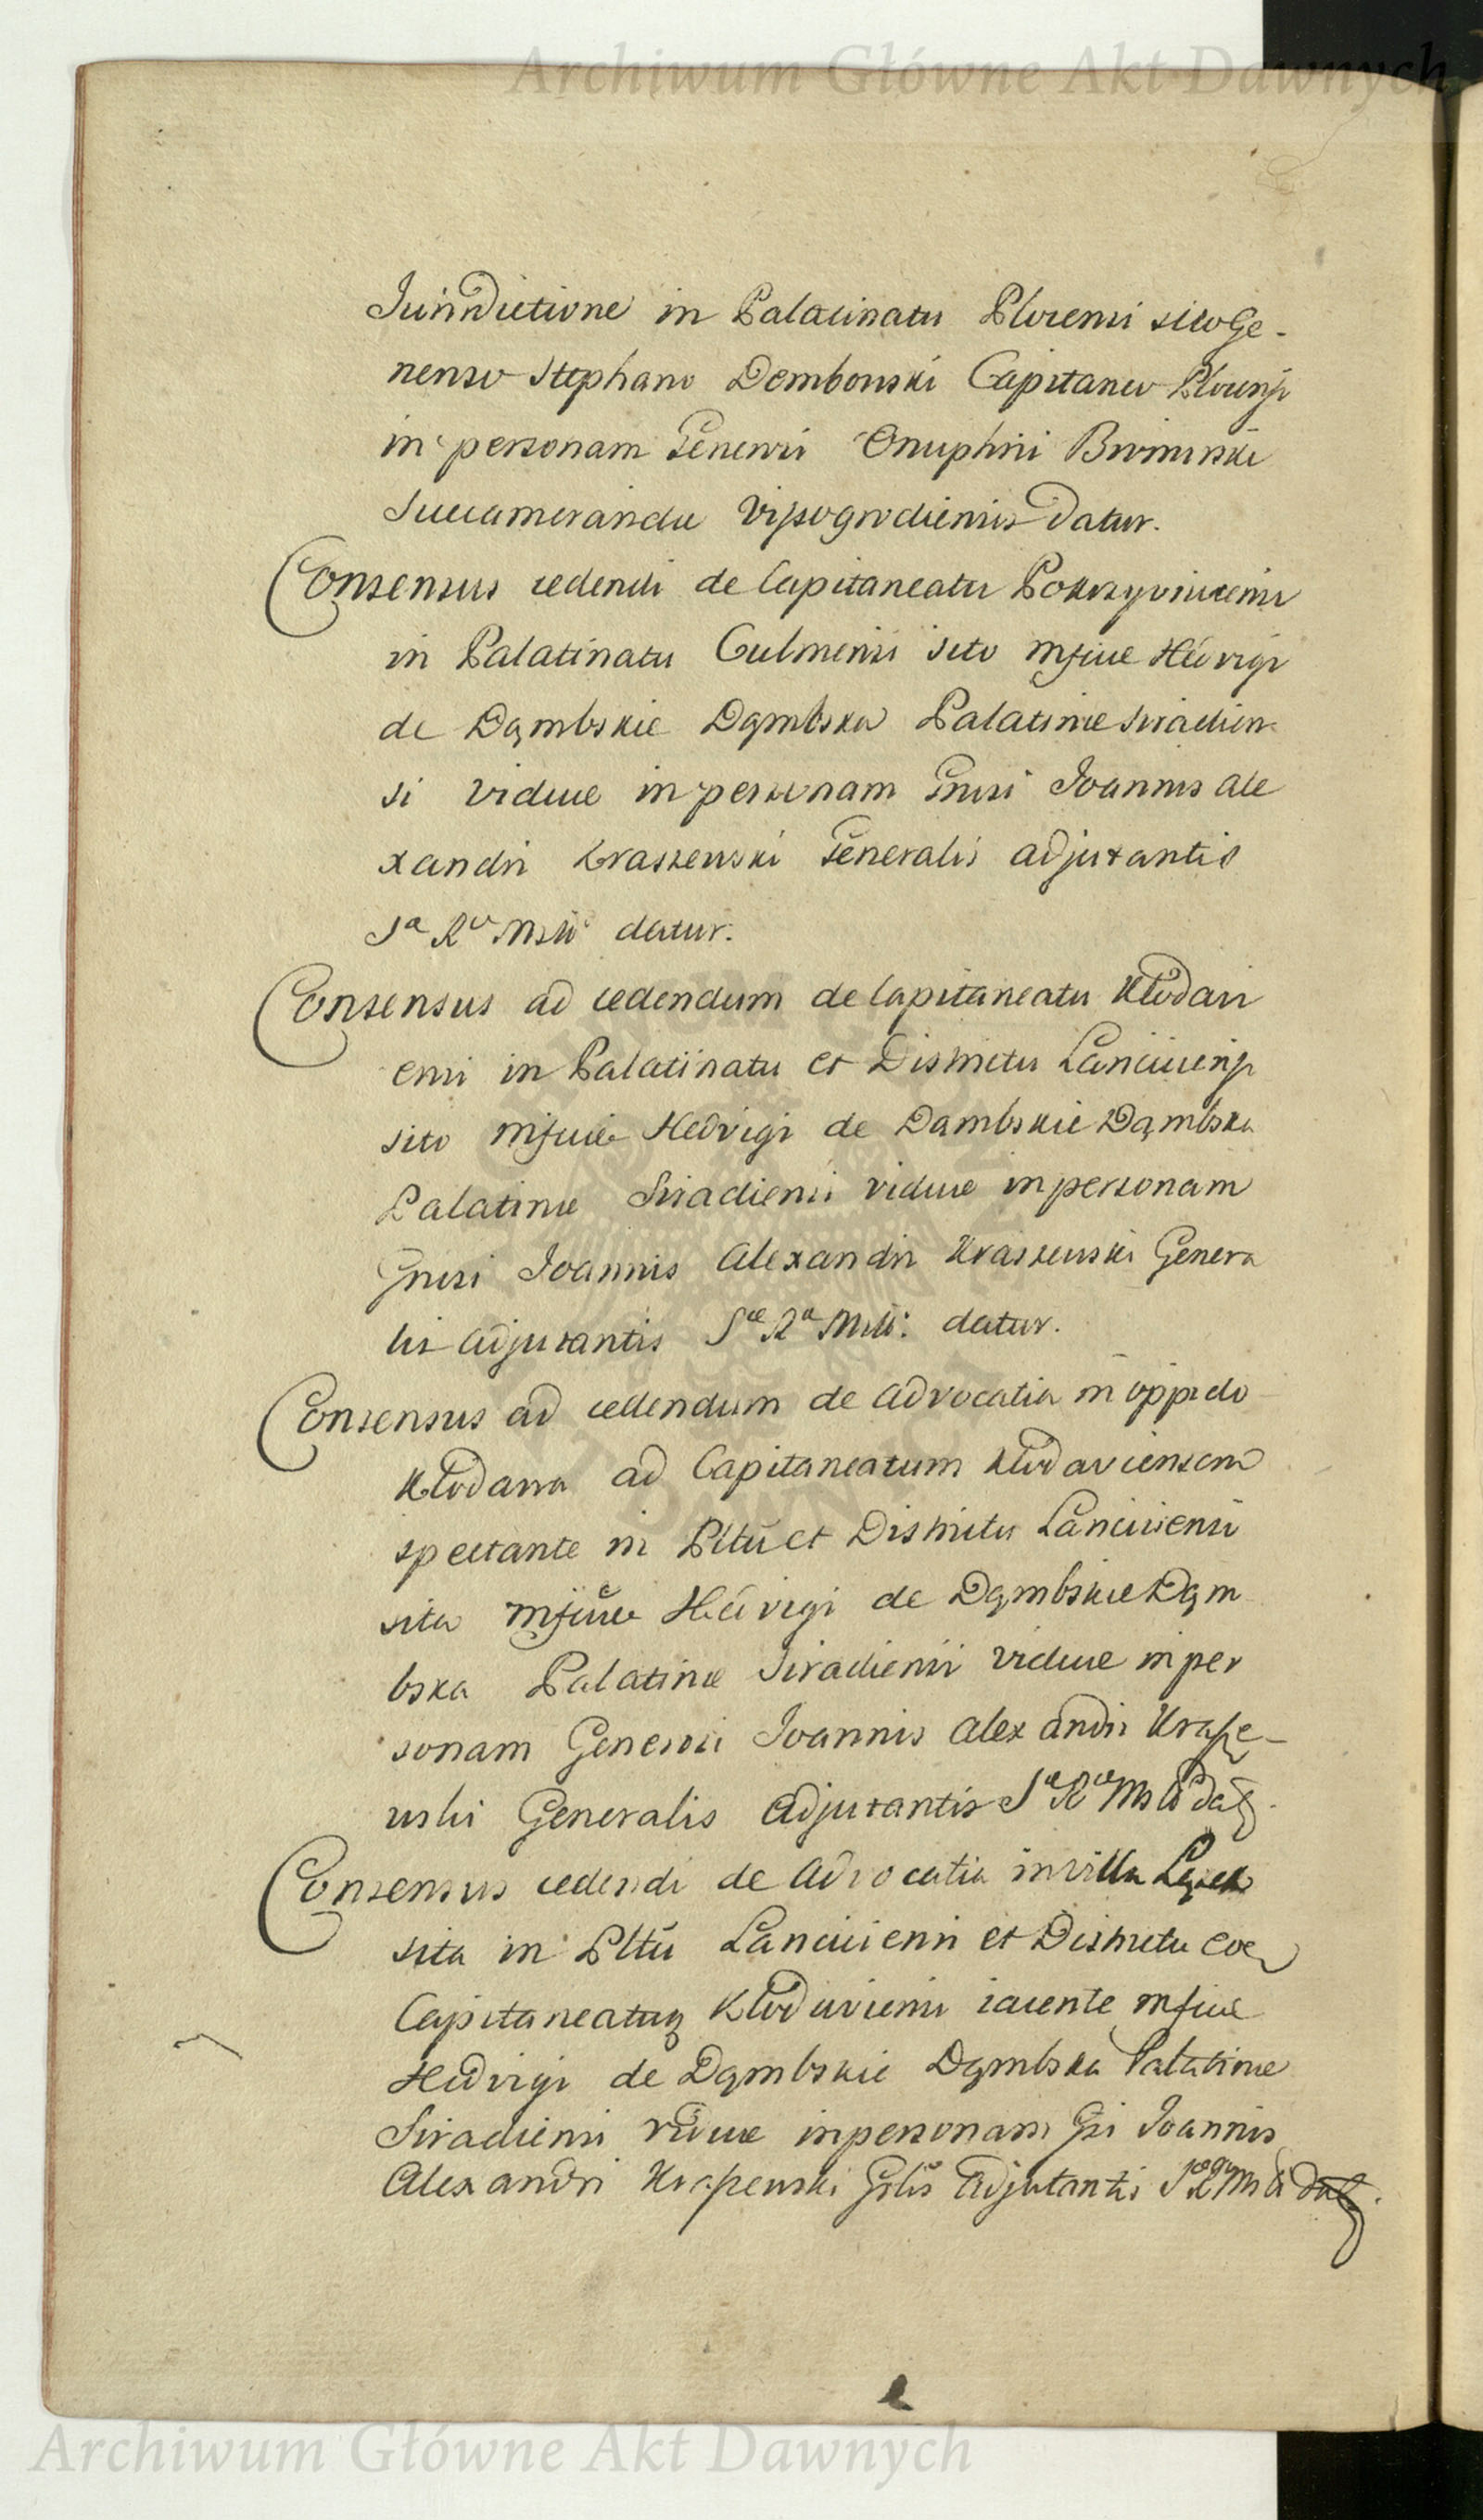 Archiwum Główne Akt Dawnych
Jurisdictione in Palatinatu Plocensi sito Ge-
neroso Stephano Dembowski Capitaneo Plocensi
in personam Generosi Onuphrii Bromirski
Succameraridae Vissogrodiensis datur.
Consensus cedendi de Capitaneatu Pokrzywnicensi
in Palatinatu Culmensi sito Mficae Hedvigi
de Dąmbskie Dąmbska Palatinae Siradien
si viduae in personam Gnrsi Joannis Ale
xandri Kraszewski Generalis Adjutantis
Sae Rae Mttis datur.
Consensus ad cedendum de Capitaneatu Kłodavi
ensi in Palatinatu et Districtu Lanciciensi
sito Mficae Hedvigi de Dambskie Dąmbska
Palatinae Siradiensi viduae in personam
Gnrsi Joannis Alexandri Kraszewski Genera
lis Adjutantis Sae Rae Mttis: datur.
Consensus ad cedendum de Advocatia in oppido
Kłodawa ad Capitaneatum Kłodaviensem
spectante in Pltu et Districtu Lanciciensi
sita Mficae Hedvigi de Dąmbskie Dąm
bska Palatinae Siradiensi viduae in per
sonam Generosi Joannis Alexandri Krasze-
wski Generalis Adjutantis Sae Rae Mttis dat.
Consensus cedendi de Advocatia in villa
sita in Pltu Lanciciensi et Districtu eoq
Capitaneatuq Kłodaviensi iacente Mficae
Hedvigi de Dąmbskie Dąmbska Palatinae
Siradiensi viduae in personam Gsi Joannis
Alexandri Kraszewski Grlis Adjutantis Sae Rae Mttis dat.
Archiwum Główne Akt Dawnych